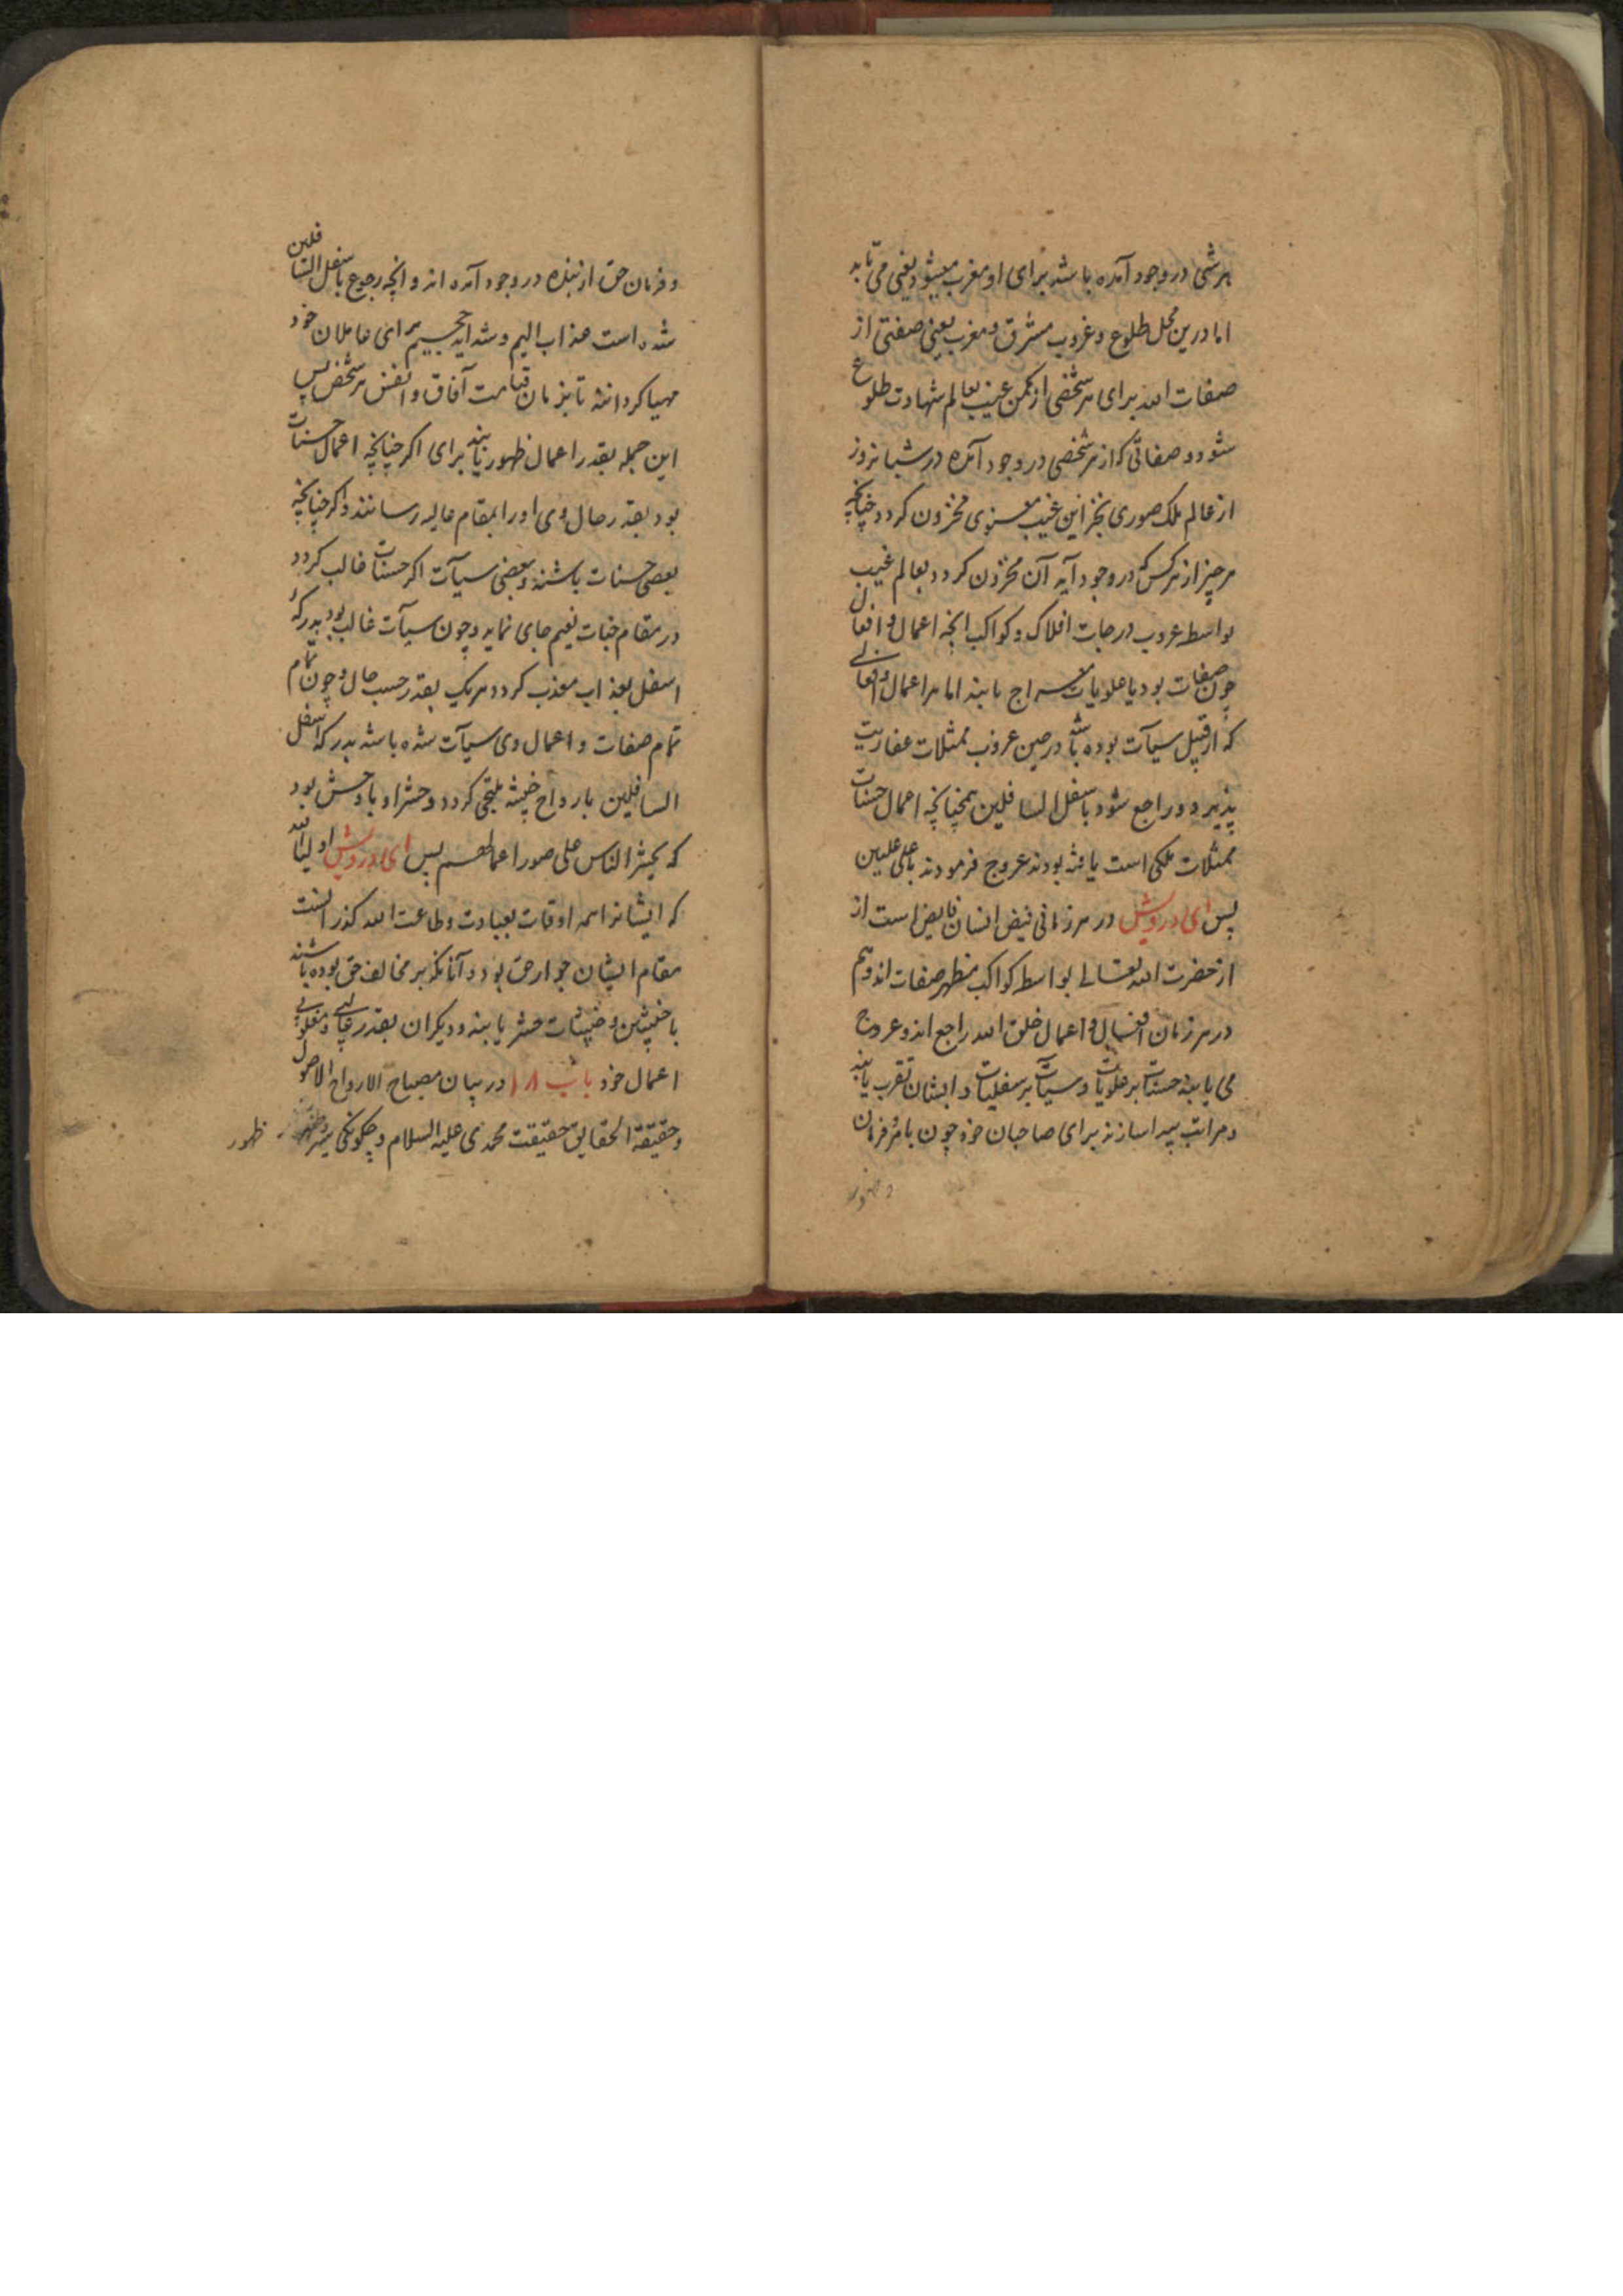 هرشی در وجود آمده باشد برای او مغرب میشود یعنی می تابد
اما درین محل طلوع و غروب مشرق و مغرب یعنی صفتی از
صفات الله برای هر شخصی از مکمن غیب بعالم شهادت طلوع
شود و صفاتی که از هر شخصی در وجود آمده در شبانروز
از عالم ملک صوری بخزاین غیب معنوی مخزون کردد چنانچه
هر چیز از هر کس که در وجود آید آن مخزون کردد بعالم غیب
بواسطه عروب درجات افلاک و کواکب انچه اعمال و افعال
چون صفات بود با علویات معراج یابند اما هر اعمال و افعالی
که از قبیل سیآت بوده باشد در حین عروب ممثلات عفاریت
پذیرد و راجع شود باسفل السافلین همچنانچه اعمال حسنات
ممثلات ملکی است یافته بودند عروج فرمودند باعلی علیین
پس ای درویش در هر زمانی فیض انسان فایض است از
از حضرت الله تعالی بواسطه کواکب مظهر صفات اند و هم
در هر زمان افعال و اعمال خلق الله راجع اند و عروج
می یابند حسنات بر علویات و سیآت بر سفلیات و ایشان تقرب یابند
و مراتب پیدا سازند برای صاحبان خود چون بامر فرمان
و فرمان حق از بنده در وجود آمده اند و انچه رجوع باسفل السافلین
شده است عذاب الیم و شداید جحیم برای عاملان خود
مهیا کردانند تا بزمان قیامت آفاق و انفس هر شخص پس
این جمله بقدر اعمال ظهور یابند برای اکر چنانچه اعمال حسنات
بود بقدر حال وی او را بمقام عالیه رسانند و اکر چنانچه
بعضی حسنات باشند و بعضی سیآت اکر حسنات غالب کردد
در مقام جنات نعیم جای نماید و چون سیآت غالب بود بدرکه
اسفل بعذاب معذب کردد هر یک بقدر حسب حال و چون تمام
تمام صفات و اعمال وی سیآت شده باشد بدرکه اسفل
السافلین بارواح خبیثه ملتجی کردد و حشر او با وحش بود
که یحشر الناس علی صور اعمالهم پس ای درویش اولیاالله
که ایشانرا همه اوقات بعبادت و طاعت الله کذرانست
مقام ایشان جوار حق بود و آنانکه بر مخالف حق بوده باشند
با خبیثین و خبیثات حشر یابند و دیکران بقدر غالبی و مغلوبی
اعمال خود باب ۱۸ در بیان مصباح الارواح الاصول
و حقیقة الحقایق حقیقت محمدی علیه السلام و چکونکی سیر ظهور